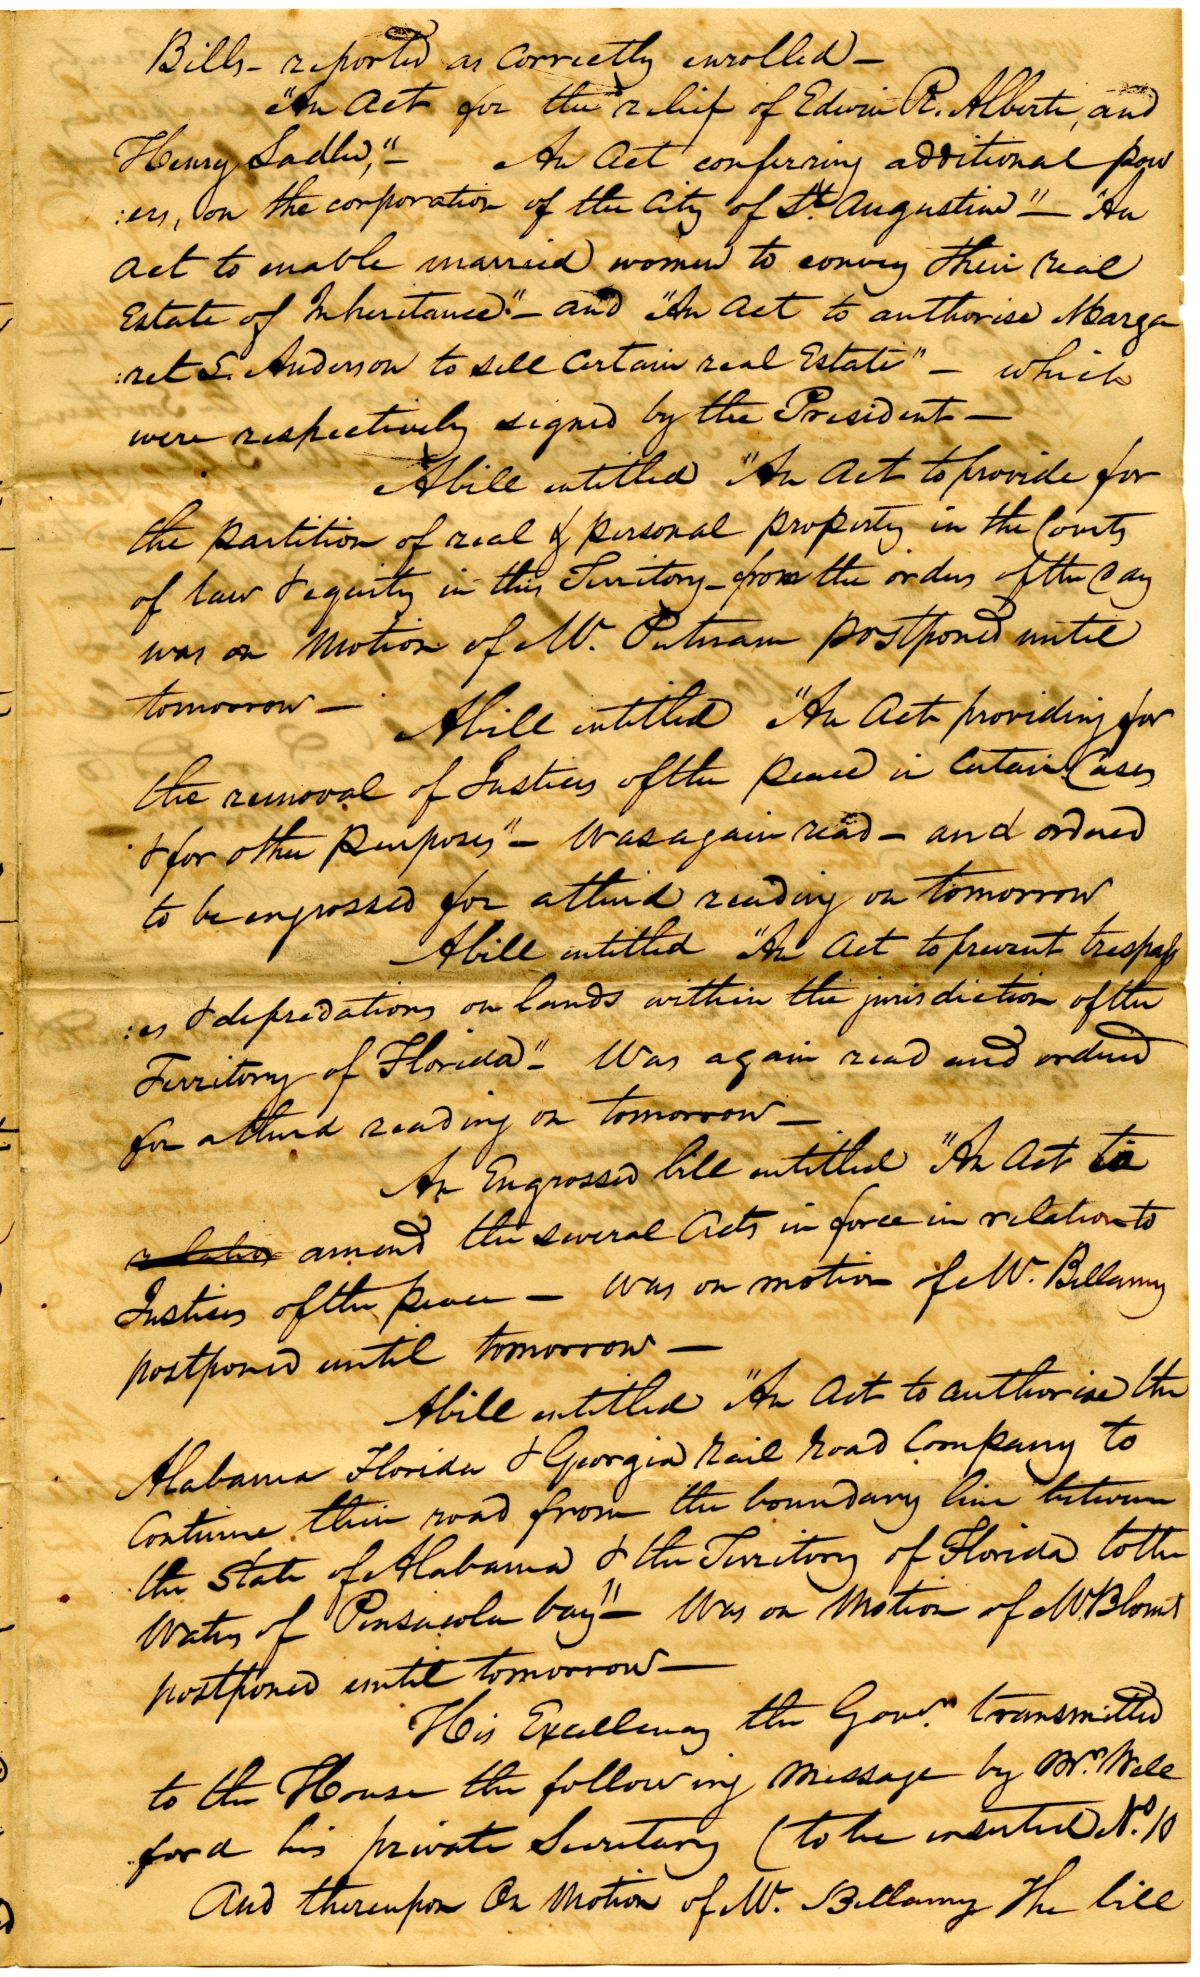 Bills – reported as correctly enrolled –
"An Act for the relief of Edwin R. Alberti, and
Henry Sadler," – An Act conferring additional pow
:ers, on the corporation of the City of St. Augustine" – "An
Act to enable married women to convey their real
Estate of Inheritance" – and "An Act to authorise Marga
:ret S. Anderson to sell certain real Estate" – which
were respectively signed by the President –
A bill entitled "An Act to provide for
the partition of real & personal property in the Courts
of law & equity in this Territory – from the orders of the day
was on motion of Mr. Putnam postponed until
tomorrow –
A bill entitled "An Act providing for
the removal of Justices of the peace in Certain Cases
& for other purposes" – was again read – and ordered
to be engrossed for a third reading on tomorrow
A bill entitled "An Act to prevent trespass
:es & depredations on lands within the jurisdiction of the
Territory of Florida" – Was again read and ordered
for a third reading on tomorrow –
An Engrossed bill entitled "An Act to
amend the several Acts in force in relation to
Justices of the peace – was on motion of Mr. Bellamy
postponed until tomorrow –
A bill entitled "An Act to authorise the
Alabama Florida & Georgia Rail Road Company to
Continue their road from the boundary line between
the State of Alabama & the Territory of Florida to the
Waters of Pensacola bay" – Was on Motion of Mr. Blount
postponed until tomorrow –
His Excellency the Govr. transmitted
to the House the following message by Mr. Well
ford his private Secretary (to be inserted No. 10
And thereupon On Motion of Mr. Bellamy The bill